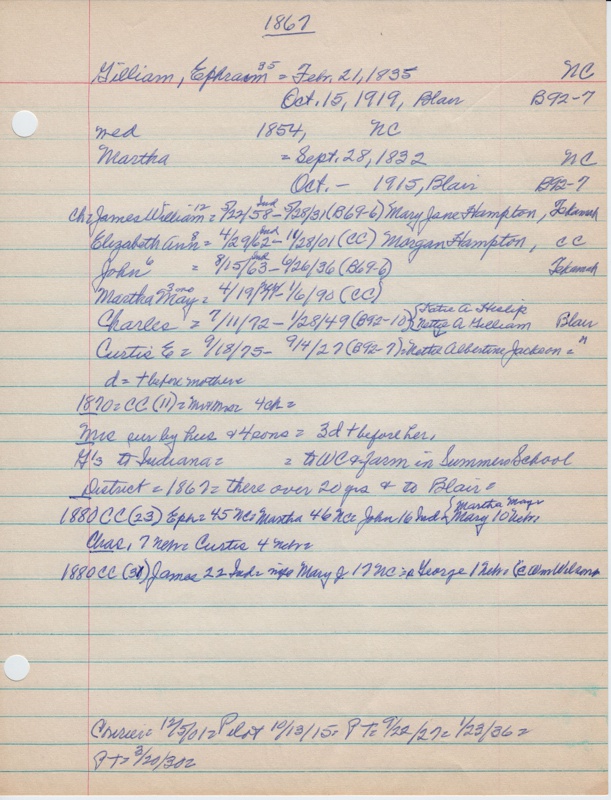 1867
Gilliam, Ephraim 35 = Febr. 21, 1835 NC
Oct. 15, 1919, Blair B92-7
med 1854, NC
Martha = Sept. 28, 1832 NC
Oct. - 1915, Blair B92-7
ch = James William 12 = 5/22/58 Ind - 5/28/31 (B69-6) Mary Jane Hampton, Tekamah
Elizabeth Ann 8 = 4/29/62 Ind - 11/28/01 (CC) Morgan Hampton, CC
John 6 = 8/15/63 Ind - 6/26/36 (B69-6) Tekamah
Martha May 3mo = 4/19/ - 1/6/90 (CC)
Charles = 7/11/72 - 1/28/49 (B92-10) { A Heslip Nettie A Gilliam Blair
Curtis E = 9/18/75 - 9/4/27 (B92-7) = Nettie Albertine Jackson = "
d = + before mother =
1870 = CC (11) = 4ch =
Mrs sur by hus & 4 sons = 3d + before her,
G's to Indiana = = to WC & farm in Summers School
District = 1867 = there over 20 yrs & to Blair =
1880 CC (23) Eph = 45 NC = Martha 46 NC = John 16 Ind { Martha May Mary 10 Nebr,
Chas, 7 Nebr = Curtis 4 Nebr =
1880 CC (31) James 22 Ind = Mary J 17 NC = George 1 Nebr = (C Wm Wilson
Courier = 12/5/01 = Pilot 10/13/15 = PT = 9/22/27 = 1/23/36 =
PT = 3/20/30 =